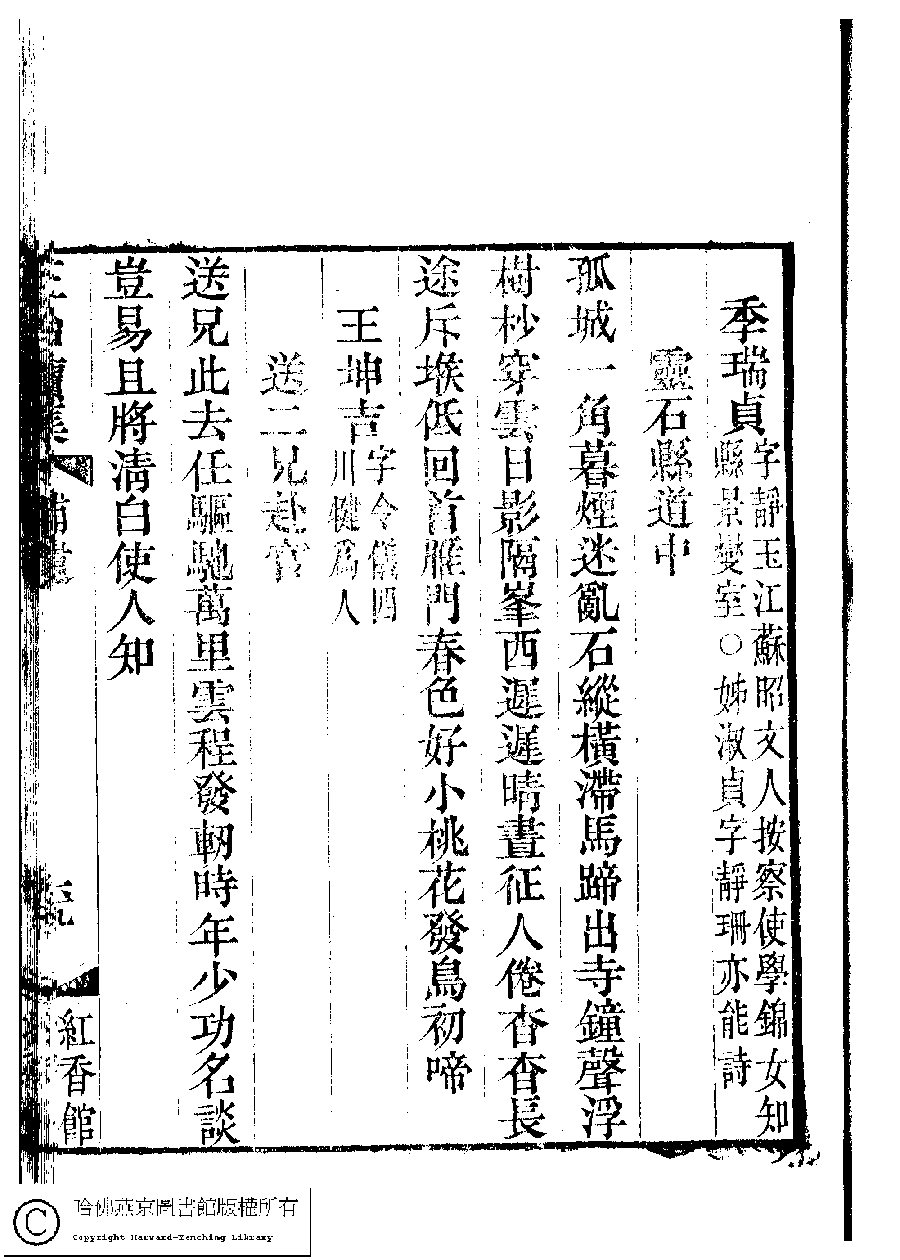 季瑞貞字靜玉江蘇昭文人按察使學錦女知
縣景燮室○姊淑貞字靜珊亦能詩
靈石縣道中
孤城一角暮煙迷亂石縱橫滯馬蹄出寺鐘聲浮
樹杪穿雲日影隔峯西遲遲晴晝征人倦杳杳長
途斥堠低回首雁門春色好小桃花發鳥初啼
王坤吉字令儀四
川犍爲人
送二兄赴官
送兄此去任驅馳萬里雲程發軔時年少功名談
豈易且將清白使人知
續集
補遺
五九
紅香館
哈佛燕京圖書館版權所有
Copyright Harvard-Yenching Library